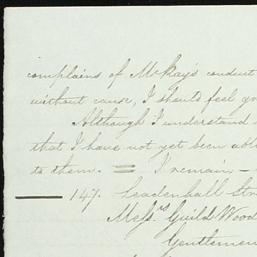 complains of McKay's conduct
without cause, I should feel
Although I understand
that I have not yet been
to them. = I remain -
147. Leadenhall
Messrs Guild Wood
Gentlemen